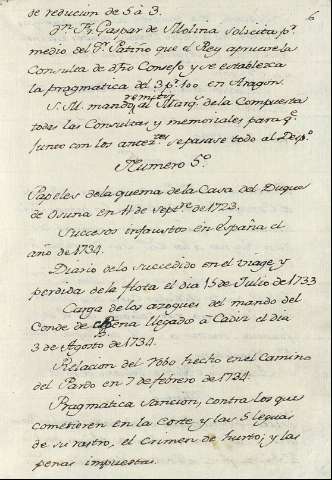 6
de reducion de 5 à 3.
Fr. Gaspar de Molina solicita pr.
medio del Sr. Patiño que el Rey aprueve la
Consulta de dho Consejo y se establezca
la pragmatica del 3 pr. 100 en Aragon.
S. M. mandò remitir al Marqs. de la Compuesta
todas las Consultas y memoriales para qe.
junto con los antecrtes se pasase todo al Despo.
Numero 5º.
Papeles de la quema de la Casa del Duque
de Osuna en 11 de Septre. de 1723.
Sucesos infaustos en España el
año de 1734.
Diario de lo succedido en el viage y
perdida de la flota el dia 15 de Julio de 1733
Carga de los azogues del mando del
Conde de llegado à Cadiz el dia
3 de Agosto de 1734.
Relacion del Robo hecho en el Camino
del Pardo en 7 de febrero de 1734.
Pragmatica Sancion, contra los que
cometieren en la Corte y las 5 leguas
de su rastro, el Crimen de hurto; y las
penas impuestas.